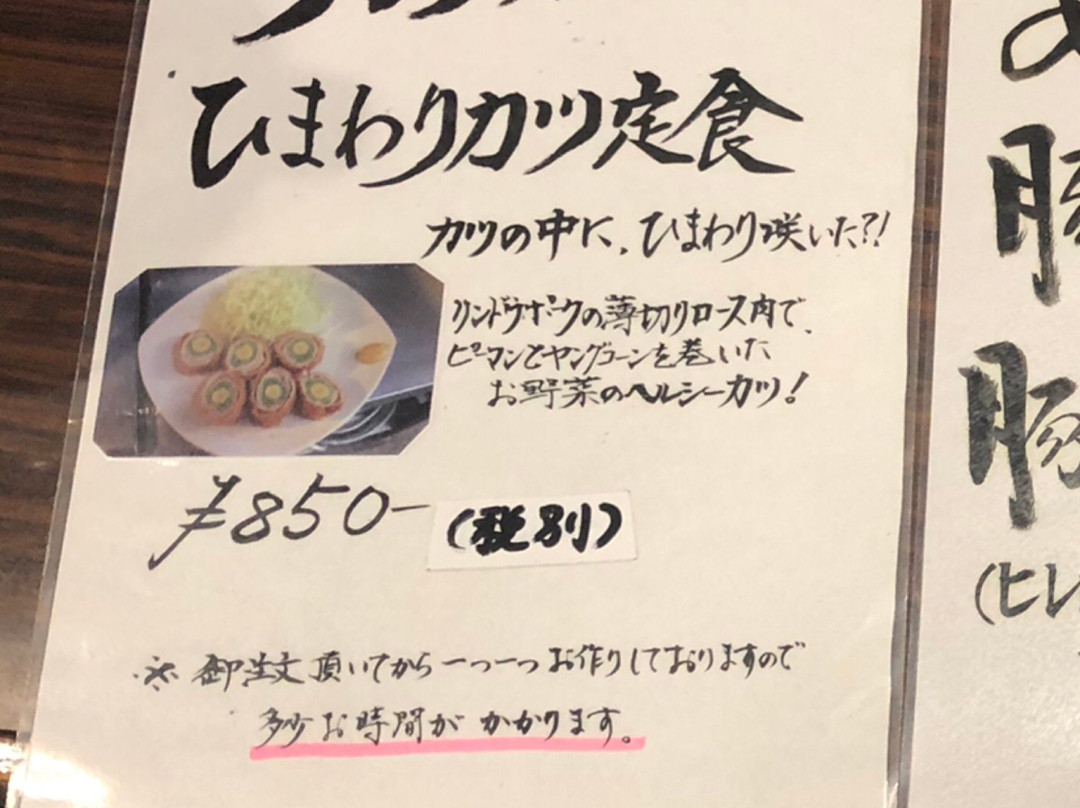 ひまわりカツ定食
カツの中に、ひまわり咲いた?!
リンドウポークの薄切りロース肉で、
ピーマンとヤングコーンを巻いた
お野菜のヘルシーカツ!
¥850-
(税別)
※御注文頂いてから一つ一つお作りしておりますので
多少お時間がかかります。
豚
(ヒレ